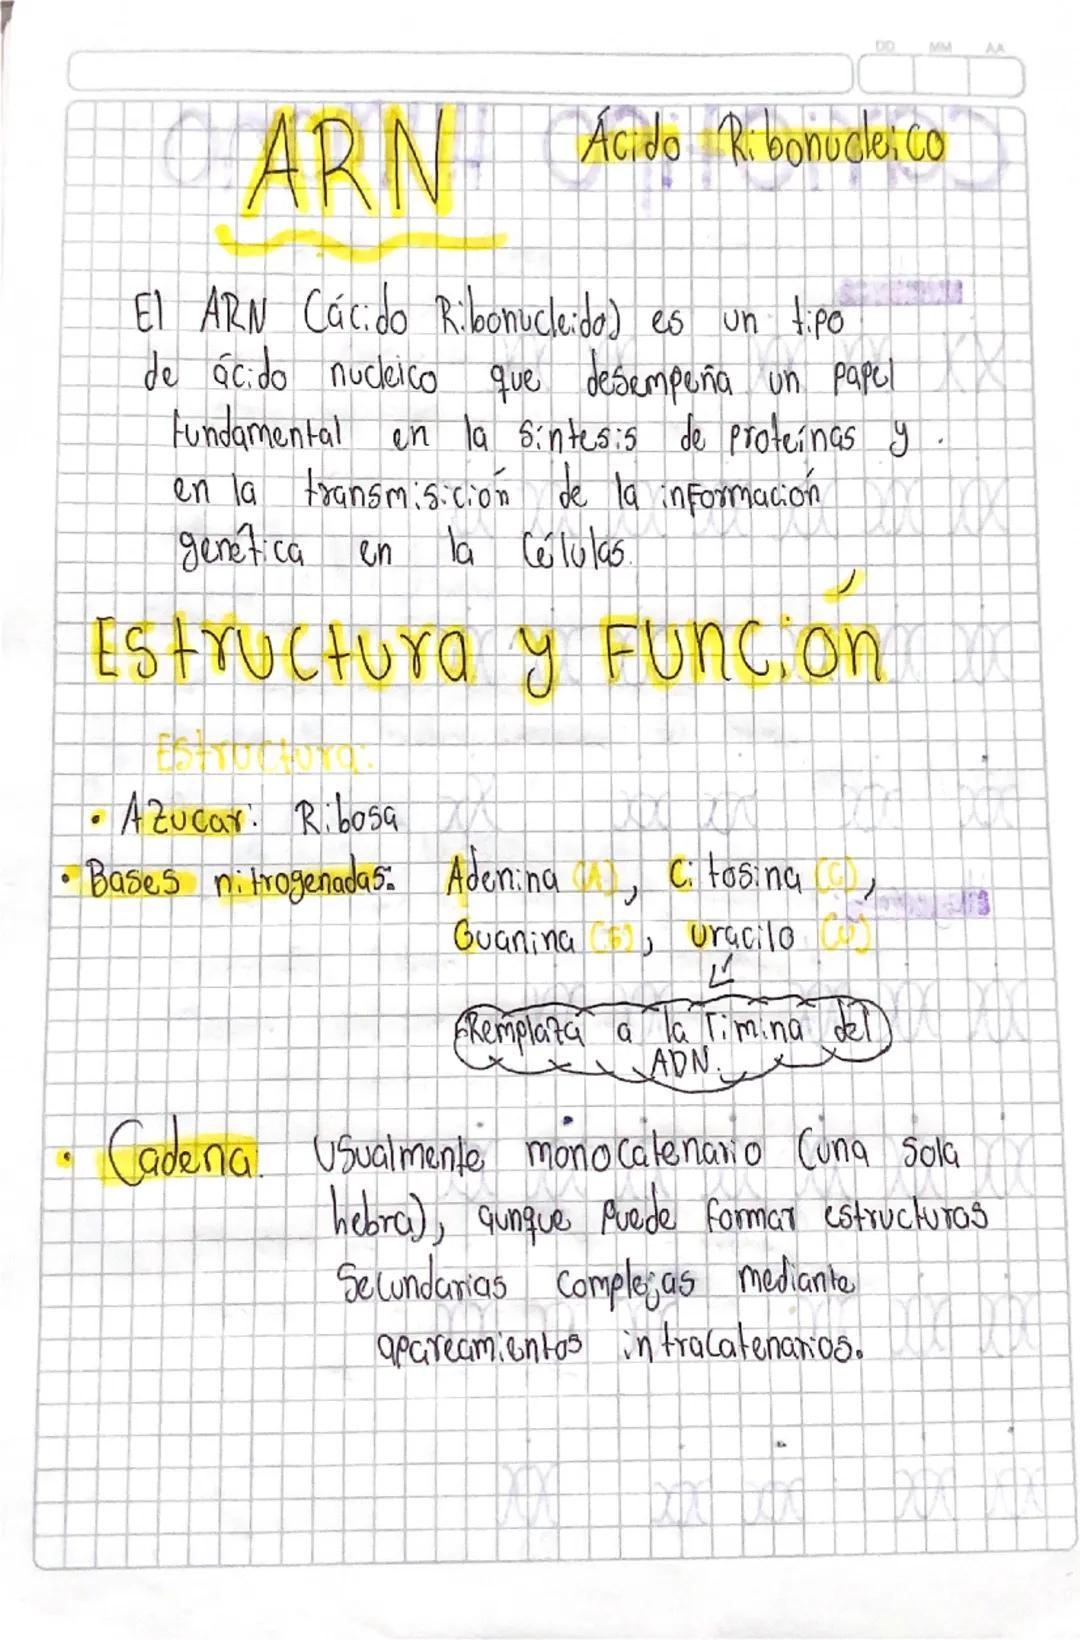 DD MM AA
ARN Ácido Ribonucleico
El ARN (ácido Ribonucleido) es un tipo
de ácido nucleico que desempeña un papel
fundamental en la síntesis de proteínas y
en la transmisición de la información
genética en la Células.
Estructura y Función
Estructura:
• Azucar: Ribosa
• Bases nitrogenadas: Adenina (A), Citosina (C),
Guanina (G), uracilo (U)
Remplaza a la Timina del
ADN.
• Cadena: Usualmente monocatenario (una sola
hebra), aunque puede formar estructuras
Secundarias complejas mediante
apareamientos intracatenarios.